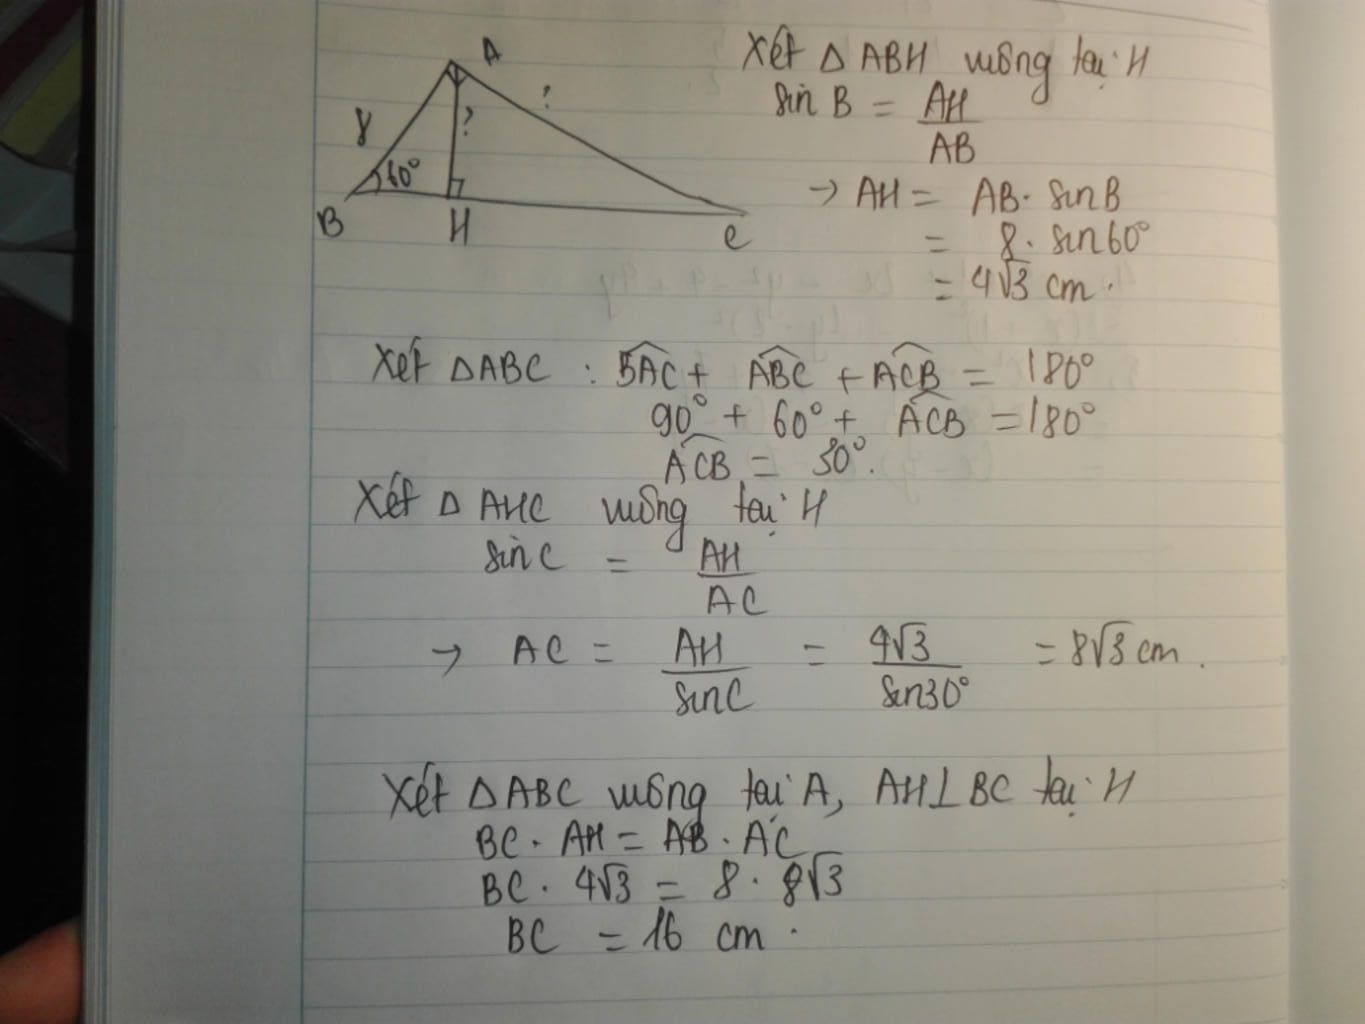 A
8
?
?
60°
B
H
C
Xét △ ABH vuông tại H
sin B = AH / AB
→ AH = AB · sin B
= 8 · sin 60°
= 4√3 cm.
Xét △ABC : BAC + ABC + ACB = 180°
90° + 60° + ACB = 180°
ACB = 30°.
Xét △ AHC vuông tại H
sin C = AH / AC
→ AC = AH / sin C = 4√3 / sin 30° = 8√3 cm.
Xét △ABC vuông tại A, AH⊥BC tại H
BC · AH = AB · AC
BC · 4√3 = 8 · 8√3
BC = 16 cm.